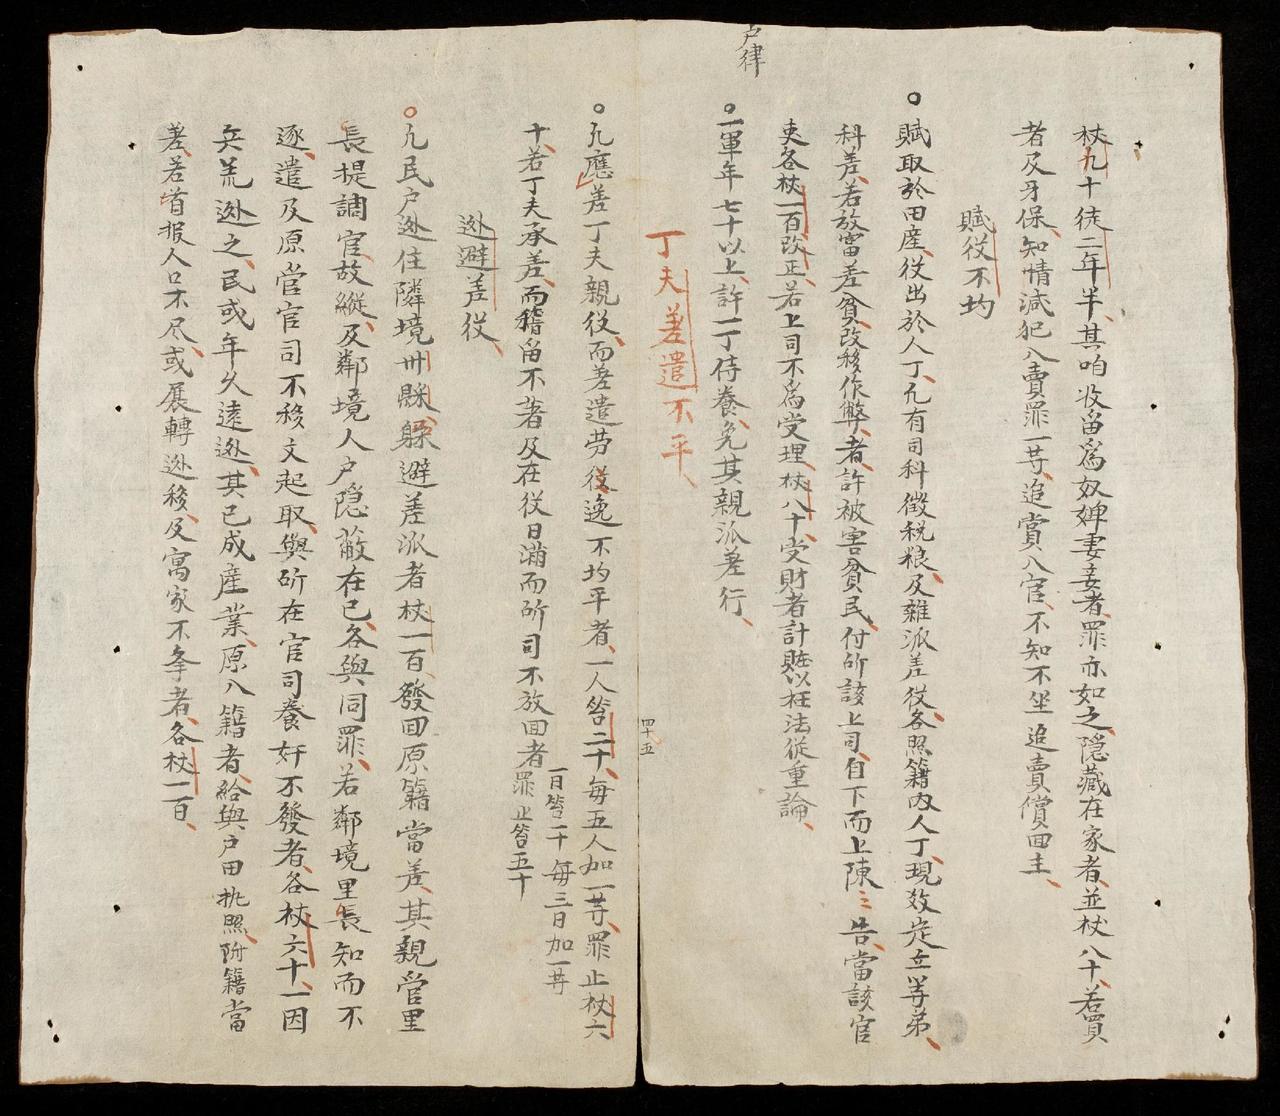 户律
杖九十徒二年半其咱收留爲奴婢妻妾者罪亦如之隠藏在家者並杖八十若買
者及牙保知情減犯人賣罪一等追賞入官不知不坐追賣償囬主
賦役不均
賦取於田産役出於人丁凢有司科徴税粮及雜派差役各照籍内人丁現效定立等弟
科差若放富差貧改移作弊者許被害貧民付所該上司自下而上陳〻告當該官
吏各杖一百改正若上司不爲受理杖八十受財者計贓以枉法従重論
一軍年七十以上許一丁侍養免其親派差行
丁夫差遣不平
凢應差丁夫親役而差遣劳役逸不均平者一人笞二十每五人加一等罪止杖六
十若丁夫承差而稽留不著及在役日满而所司不放囬者一日笞一十每三日加一等罪止笞五十
迯避差役
凢民户迯住隣境卅縣躱避差派者杖一百發囬原籍當差其親管里
長提調官故縱及鄰境人户隠蔽在己各與同罪若鄰境里長知而不
逐遣及原管官司不移文起取與所在官司養奸不發者各杖六十一因
兵荒迯之民或年久遠迯其已成産業原入籍者給與户田批照附籍當
差若首报人口不尽或展轉迯移及寓家不夆者各杖一百
四十五